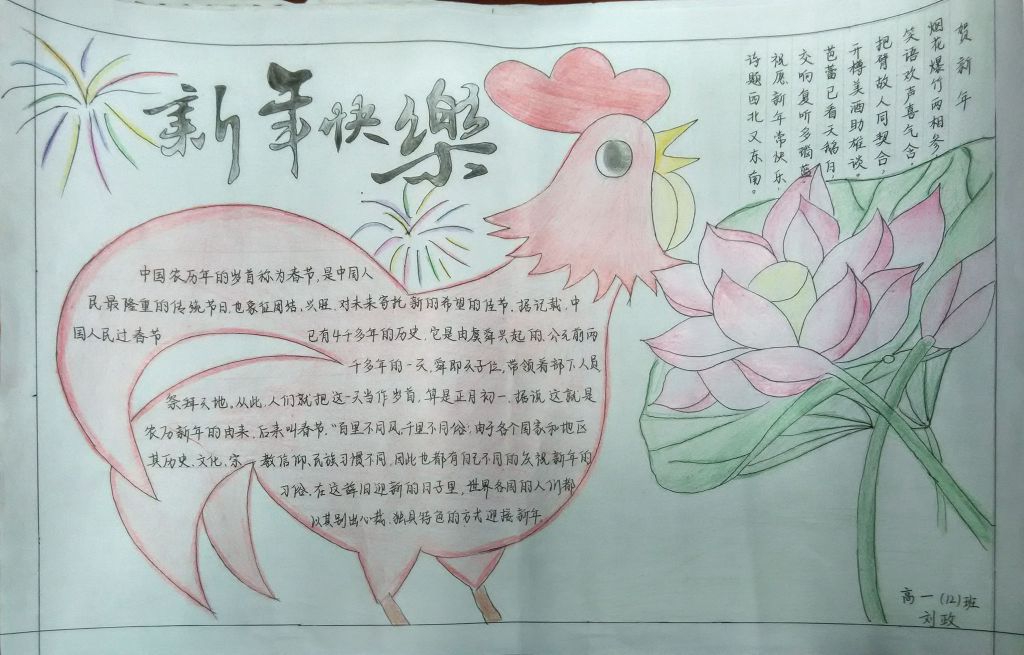 新年快樂
贺新年
烟花爆竹两相参,
笑语欢声喜气含,
把臂故人同契合,
开樽美酒助雄谈。
芭蕾已看天鹅日,
交响复听多瑙蓝
祝愿新年常快乐,
诗题西北又东南。
中国农历年的岁首称为春节,是中国人
民最隆重的传统节日,也象征团结、兴旺,对未来寄托新的希望的佳节。据记载,中
国人民过春节已有4千多年的历史,它是由虞舜兴起的。公元前两
千多年的一天,舜即天子位,带领着部下人员
祭拜天地。从此,人们就把这一天当作岁首,算是正月初一。据说这就是
农历新年的由来,后来叫春节。"百里不同风,千里不同俗",由于各个国家和地区
其历史、文化、宗教信仰、民族习惯不同,因此也都有自己不同的庆祝新年的
习俗。在这辞旧迎新的日子里,世界各国的人们都
以其别出心裁、独具特色的方式迎接新年。
高一(12)班
刘政